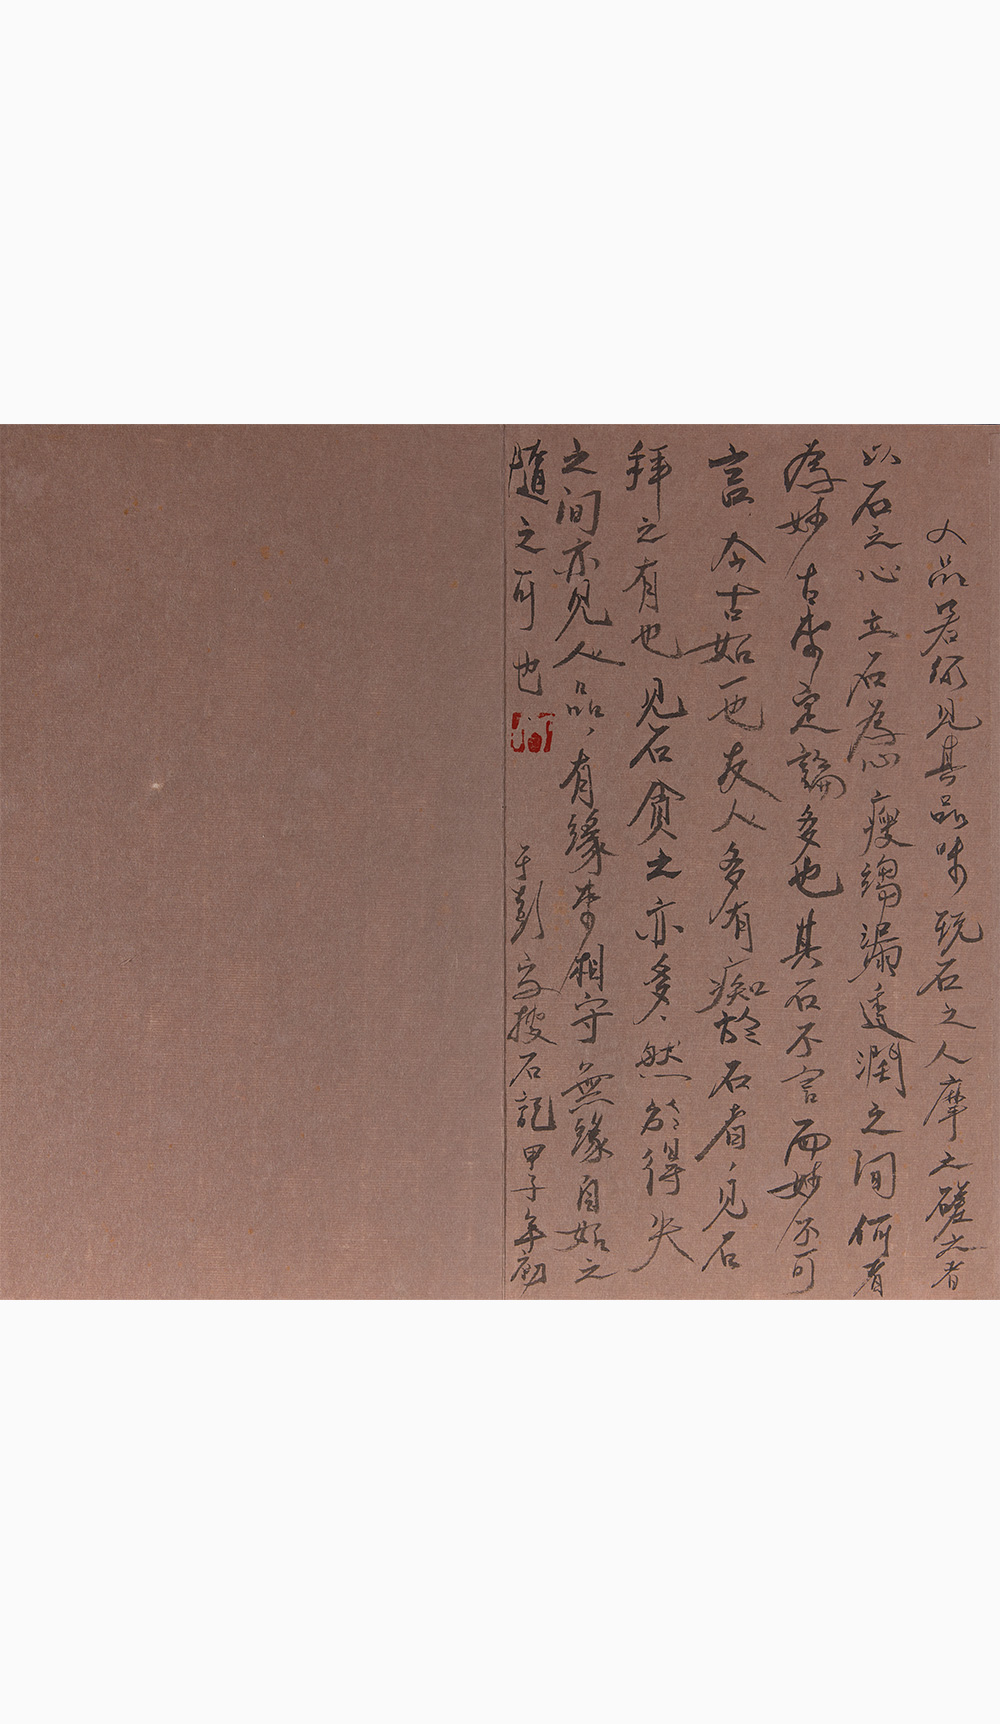 人品若何見其品味 玩石之人摩之磋之者
以石之心立石為心瘦縐漏透潤之間何者
為妙古來定論多也其石不言而妙不可
言今古如一也友人多有痴於石者見石
拜之有也見石貪之亦多然於得失
之間亦見人品有緣來相守無緣自如之
隨之可也
于彭 石記甲子年